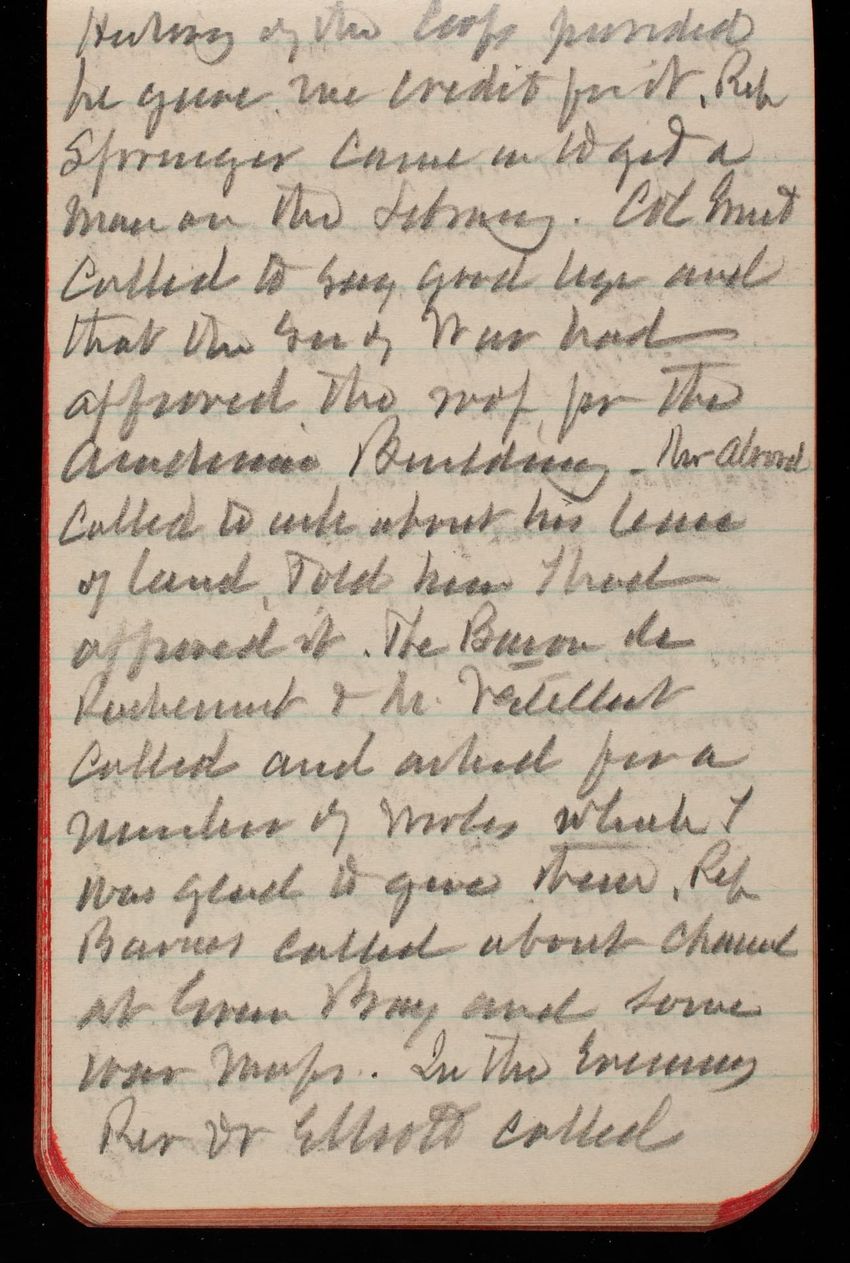 History of the Corps provided
he gave me credit for it. Rep
Springer came in to get a
man on the Library. Col Ernst
Called to say good bye and
that the Sec of War had
approved the roof for the
Academic Building. Mr Alvord
Called to ask about his lease
of land. Told him I had
approved it. The Baron de
& Mr.
Called and asked for a
number of works which I
was glad to give them. Rep
Barnes called about channel
at Green Bay and some
war maps. In the Evening
Rev Dr Elliott called